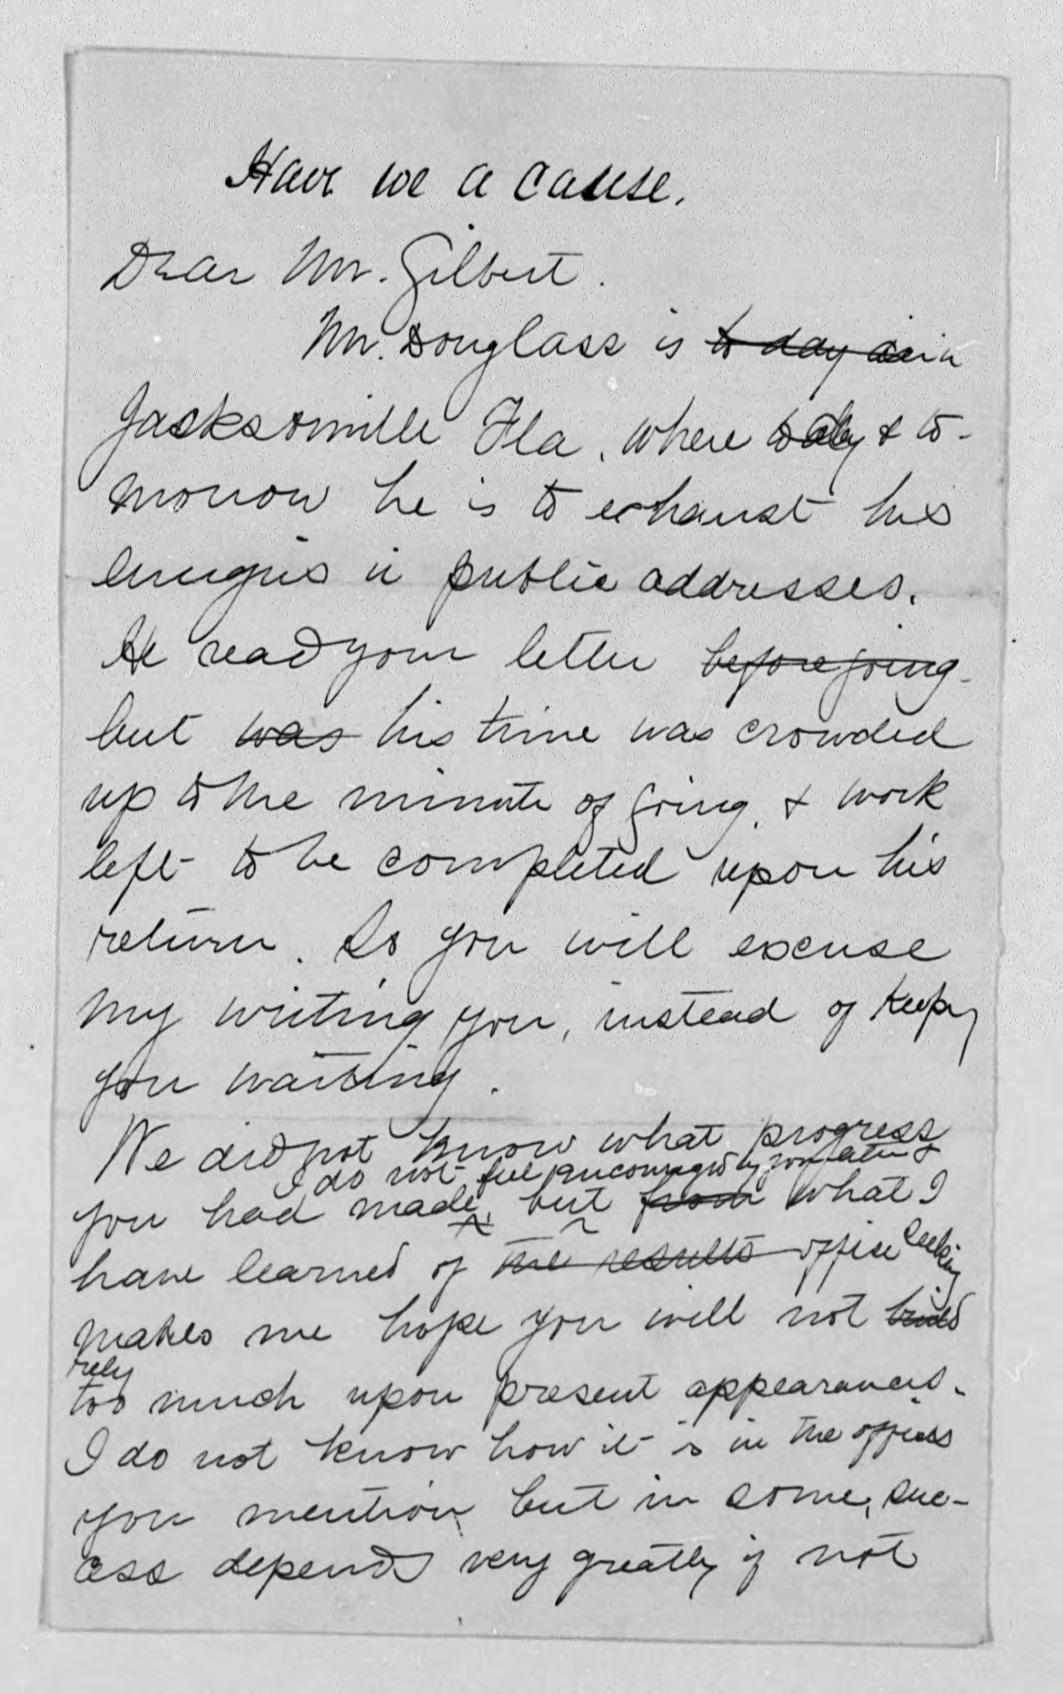 Have we a cause.
Dear Mr. Gilbert.
Mr. Douglass is to day in in
Jacksonville Fla. where today & to-
morrow he is to exhaust his
energies in public addresses.
He read your letter before going
but was his time was crowded
up to the minute of going, & work
left to be completed upon his
return. So you will excuse
my writing you, instead of keepg
you waiting.
We did not know what progress
I do not feel encouraged by your letter &
you had made, but from what I
have learned of the results office seeking
makes me hope you will not build
rely
too much upon present appearances.
I do not know how it is in the offices
you mention but in some, suc-
cess depends very greatly if not